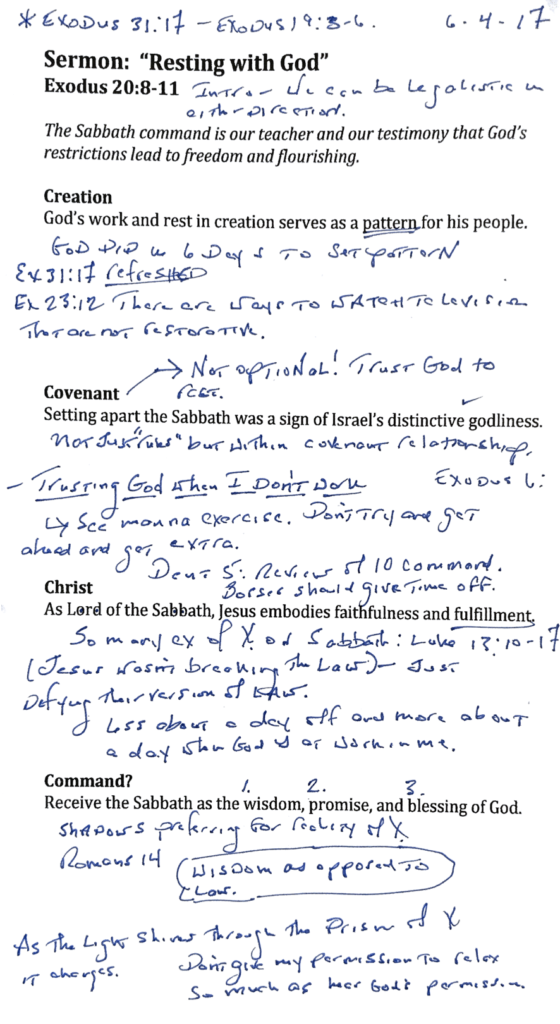 * Exodus 31:17 - Exodus 19:3-6. 6-4-17
Sermon: "Resting with God"
Exodus 20:8-11 Intro - We can be legalistic in
either direction.
The Sabbath command is our teacher and our testimony that God's
restrictions lead to freedom and flourishing.
Creation
God's work and rest in creation serves as a pattern for his people.
God did in 6 Days to set pattern
Ex 31:17 refreshed
Ex 23:12 There are ways to watch television
that are not restorative.
→ Not optional! Trust God to
rest.
Covenant
Setting apart the Sabbath was a sign of Israel's distinctive godliness.
Not just "rules" but within covenant relationship.
- Trusting God when I Don't Work Exodus 16:
↳ See manna exercise. Don't try and get
ahead and get extra.
Deut 5: Review of 10 command.
Bosses should give time off.
Christ
As Lord of the Sabbath, Jesus embodies faithfulness and fulfillment.
So many ex of X on Sabbath: Luke 13:10-17
(Jesus wasn't breaking the Law) - Just
Defying their version of Law.
Less about a day off and more about
a day when God is at work in me.
Command? 1. 2. 3.
Receive the Sabbath as the wisdom, promise, and blessing of God.
Shadows preferring for reality of X
Romans 14 Wisdom as opposed to
Law.
As the Light Shines through the Prism of X
it changes. Don't give my permission to relax
so much as hear God's permission.